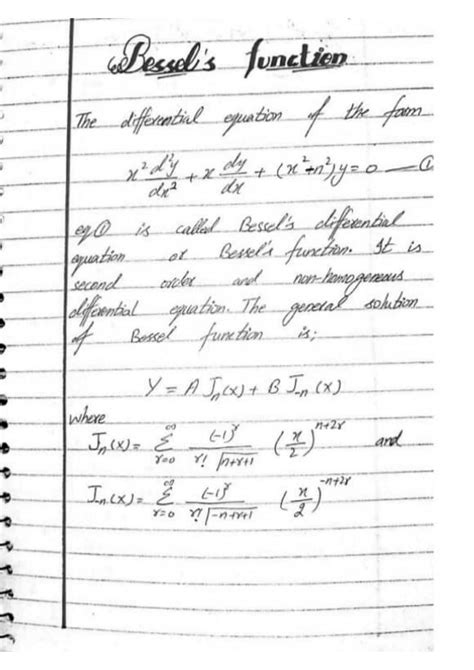 Bessel's function
The differential equation of the form
x² d²y/dx² + x dy/dx + (x²+n²)y = 0 — ①
eq① is called Bessel's differential
equation or Bessel's function. It is
second order and non-homogeneous
differential equation. The general solution
of Bessel function is;
Y = A Jₙ(x) + B J₋ₙ(x)
where
Jₙ(x) = ∞ Σ r=0 (-1)^r / r! Γn+r+1 (x/2)^n+2r and
J₋ₙ(x) = ∞ Σ r=0 (-1)^r / r! Γ-n+r+1 (x/2)^-n+2r